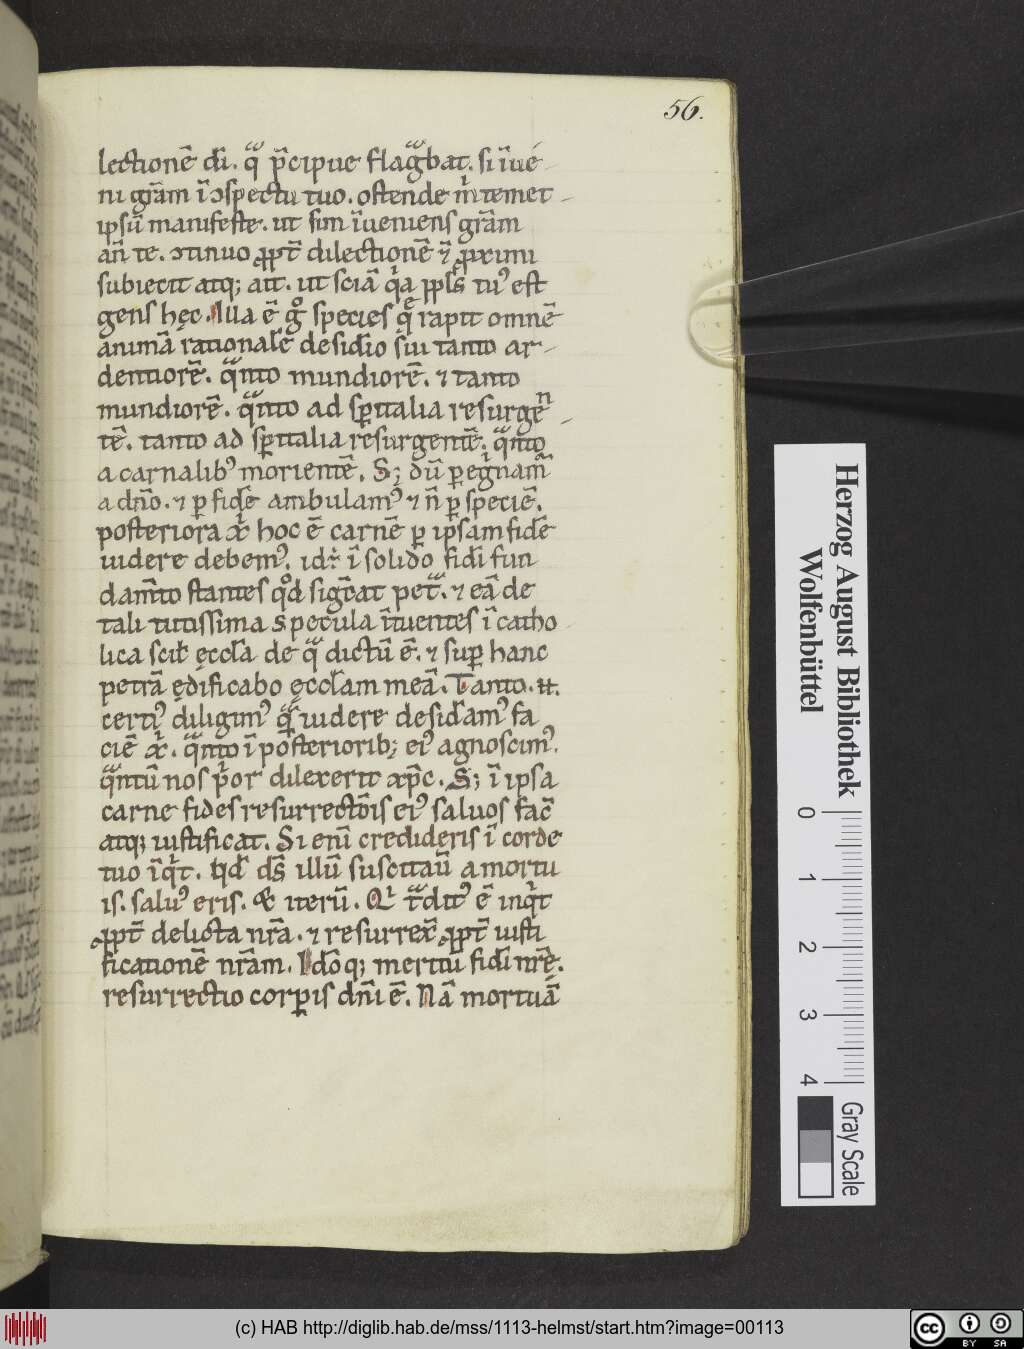 56.
lectionē dī. qͣ p̄cipue flagͣbat. si īue
ni grām ī ɔspectu tuo. ostende m̍ temet
ipsū manifeste. ut sim īueniens grām
an̄ te. ɔtinuo ꝓpt̄ dilectionē ⁊̄ ꝓximi
subiecit atq; ait. ut sciā qͥa ppl̄s tuꝰ est
gens hęc. Illa ē gͦ species qͤ rapit omnē
animā rationalē desidīo sui tanto ar
dentiorē. qͣnto mundiorē. ⁊ tanto
mundiorē. qͣnto ad sp̄italia resurgēn
tē. tanto ad sp̄italia resurgentē. qͣnto
a carnalibꝰ morientē. S; dū ꝑegͥnam̄
a dn̄o. ⁊ ꝑ fidē ambulamꝰ ⁊ n̄ ꝑ speciē.
posteriora xͥ hoc ē carnē ꝑ ipsam fidē
uidere debemꝰ. id. ī solido fidī fun
dam̄to stantes qͦd sigc̄at petͣ. ⁊ eā de
tali tutissima specula ītuentes ī catho
lica scil̄ ęccl̄a de qͣ dictū ē. ⁊ suꝑ hanc
petrā ędificabo ęccl̄am meā. Tanto .n.
certiꝰ diligimꝰ qͣ uidere desid̄amꝰ fa
ciē xͥ. qͣnto ī posteriorib; eiꝰ agnoscimꝰ.
qͣntū nos pͥor dilexerit xp̄c. S; ī ipsa
carne fides resurrectōis eiꝰ saluos fac̄
atq; iustificat. Si enī credideris ī corde
tuo īqͥt. qd̄ ds̄ illū suscitauͥ a mortu
is. saluꝰ eris. & iterū. Qͥ tͣditꝰ ē inqͥt
ꝓpt̄ delicta nr̄a. ⁊ resurrex̄ ꝓpt̄ iusti
ficationē nr̄am. Idōq; meritū fidī nr̄ę.
resurrectio corꝑis dn̄i ē. Nā mortuā
Herzog August Bibliothek
Wolfenbüttel
0 1 2 3 4
Gray Scale
(c) HAB http://diglib.hab.de/mss/1113-helmst/start.htm?image=00113
cc BY SA